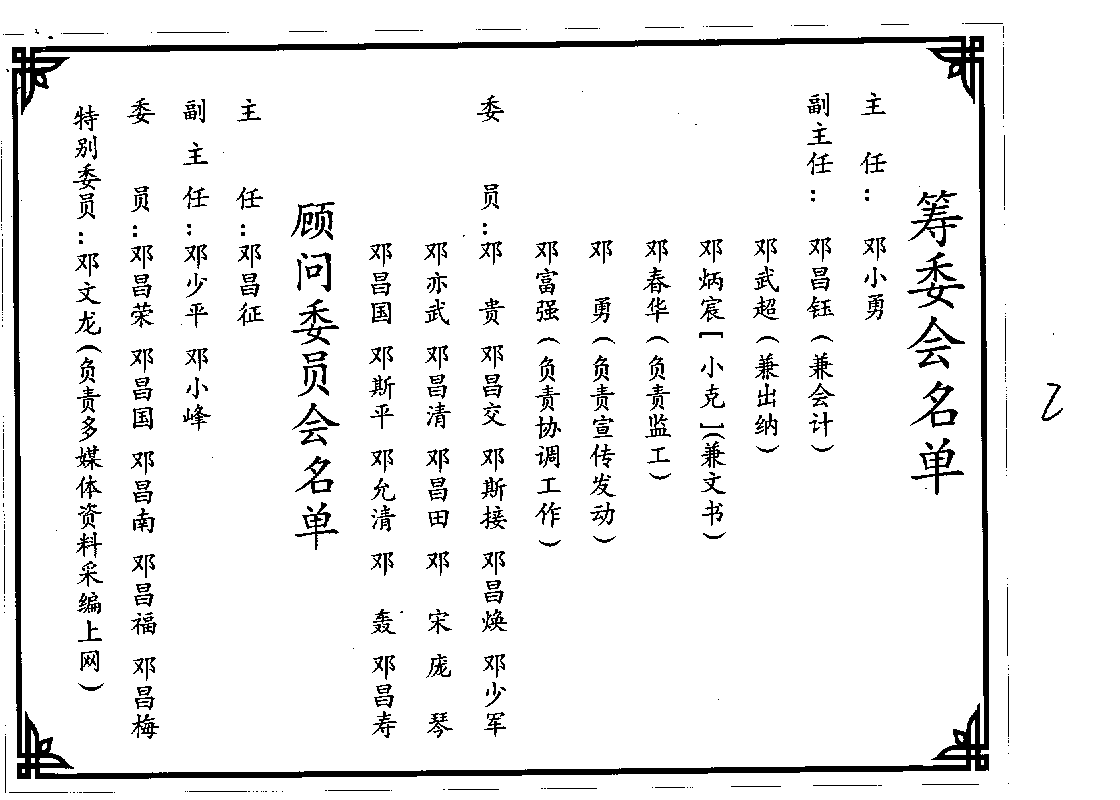 筹委会名单
主 任：邓小勇
副主任：邓昌钰（兼会计）
邓武超（兼出纳）
邓炳宸［小克］（兼文书）
邓春华（负责监工）
邓 勇（负责宣传发动）
邓富强（负责协调工作）
委 员：邓 贵 邓昌交 邓斯接 邓昌焕 邓少军
邓亦武 邓昌清 邓昌田 邓 宋 庞 琴
邓昌国 邓斯平 邓允清 邓 轰 邓昌寿
顾问委员会名单
主 任：邓昌征
副主任：邓少平 邓小峰
委 员：邓昌荣 邓昌国 邓昌南 邓昌福 邓昌梅
特别委员：邓文龙（负责多媒体资料采编上网）
2